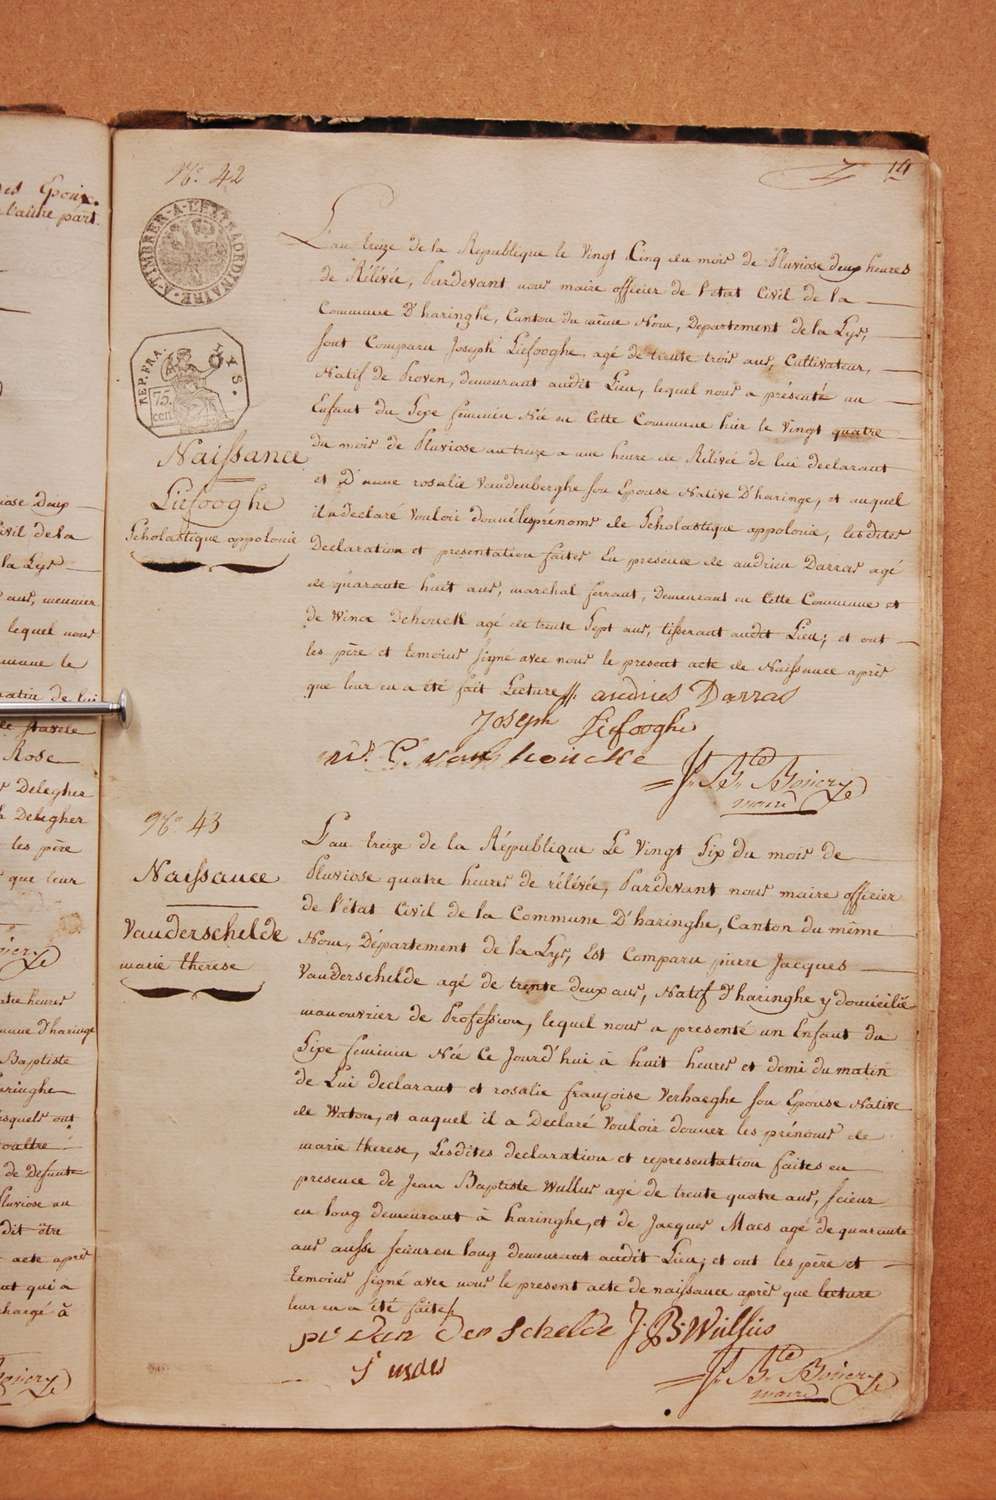 des Epoux.
l'autre part.
14
N.° 42
A TIMBRER A L'EXTRAORDINAIRE
REP. FRA.
LYS.
75.
cen
Naissance
Liefooghe
Scholastique appolonie
L'an treize de la République le Vingt Cinq du mois de Pluviose deux heures
de Rélévée, Pardevant nous maire officier de l'état Civil de la
Commune D'haringhe, Canton du même Nom, Département de la Lys,
sont Comparu Joseph Liefooghe, agé de trente trois ans, Cultivateur,
Natif de Proven, demeurant audit Lieu, lequel nous a présenté un
Enfant du Sexe feminin Née en Cette Commune hier le Vingt quatre
du mois de Pluviose an treize a une heure de Rélévée de lui declarant
et D'anne rosalie Vandenberghe son Epouse Native D'haringe, et auquel
il a declaré vouloir donné les prénoms de Scholastique appolonie, lesdites
Declaration et presentation faites En presence de andrieu Darras agé
de quarante huit ans, marchal ferrant, Demeurans en Cette Commune et
de Winoc Dehouck agé de trente Sept ans, tisserant audit Lieu; et ont
les père et temoins signé avec nous le present acte de Naissance après
que leur en a été fait Lecture //. andries Darras
Joseph Liefooghe
J. Bte. Bonery
maire
N.° 43
Naissance
Vanderschelde
marie therese
L'an treize de la République Le Vingt Six du mois de
Pluviose quatre heures de rélévée, Pardevant nous maire officier
de l'état Civil de la Commune D'haringhe, Canton du même
Nom, Département de la Lys, Est Comparu pierre Jacques
Vanderschelde agé de trente deux ans, Natif D'haringhe y domicilié
manouvrier de Profession, lequel nous a presenté un Enfant du
Sexe feminin Née Ce Jourd'hui à huit heures et demi du matin
de Lui declarant et rosalie françoise Verhaeghe son Epouse Native
de Watou, et auquel il a Declaré Vouloir donner les prénoms de
marie therese, Lesdites declaration et representation faites en
presence de Jean Baptiste Wullus agé de trente quatre ans, scieur
en long demeurant à haringhe, et de Jacques Maes agé de quarante
ans aussi scieur en long demeurant audit Lieu; et ont les père et
temoins signé avec nous le present acte de naissance après que lecture
leur en a été faite/.
pr van der schelde J: B: Wullus
J maes
J. Bte. Bonery
maire